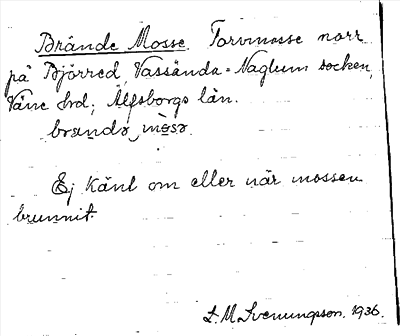 Brände Mosse. Torvmosse norr
på Björred, Vassända-Naglum socken,
Väne hrd; Älfsborgs län.
brandə mosə
Ej känt om eller när mossen
brunnit.
L. M. Svenungsson. 1936.